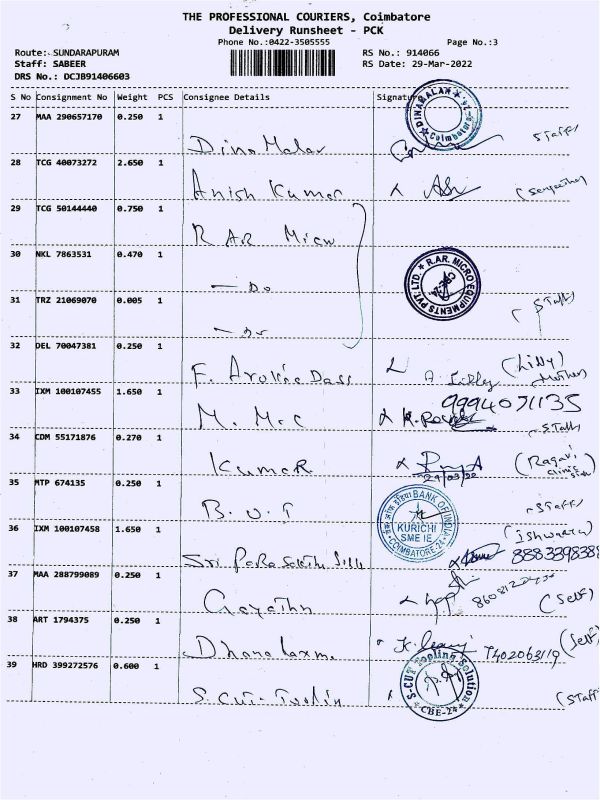 THE PROFESSIONAL COURIERS, Coimbatore
Delivery Runsheet - PCK
Phone No.:0422-3505555 Page No.:3
Route: SUNDARAPURAM RS No.: 914066
Staff: SABEER RS Date: 29-Mar-2022
DRS No.: DCJB91406603
S No Consignment No Weight PCS Consignee Details Signature
27 MAA 290657170 0.250 1 Dina Malar DINAMALAR Coimbatore Staff
28 TCG 40073272 2.650 1 Anish Kumar
29 TCG 50144440 0.750 1 R AR Micro
30 NKL 7863531 0.470 1 — Do R.AR. MICRO EQUIPMENTS PVT. LTD.
31 TRZ 21069070 0.005 1 — Do Staff
32 DEL 70047381 0.250 1 F. Arokia Dass A. Lilly (Lilly) Mother
33 IXM 100107455 1.650 1 M. M. C 9994071135 Staff
34 CDM 55171876 0.270 1 Kumar (Ragavi Clinic
35 MTP 674135 0.250 1 B. O. I BANK OF INDIA KURICHI SME IE COIMBATORE-24 Staff
36 IXM 100107458 1.650 1 Sri Para Sakthi (Ishwarya)
37 MAA 288799089 0.250 1 Gayathri (Self)
38 ART 1794375 0.250 1 Dhana Laxmi 7402063119 (Self)
39 HRD 399272576 0.600 1 S. CUT. Toolin S-CUT Tooling Solution CBE-24 (Staff